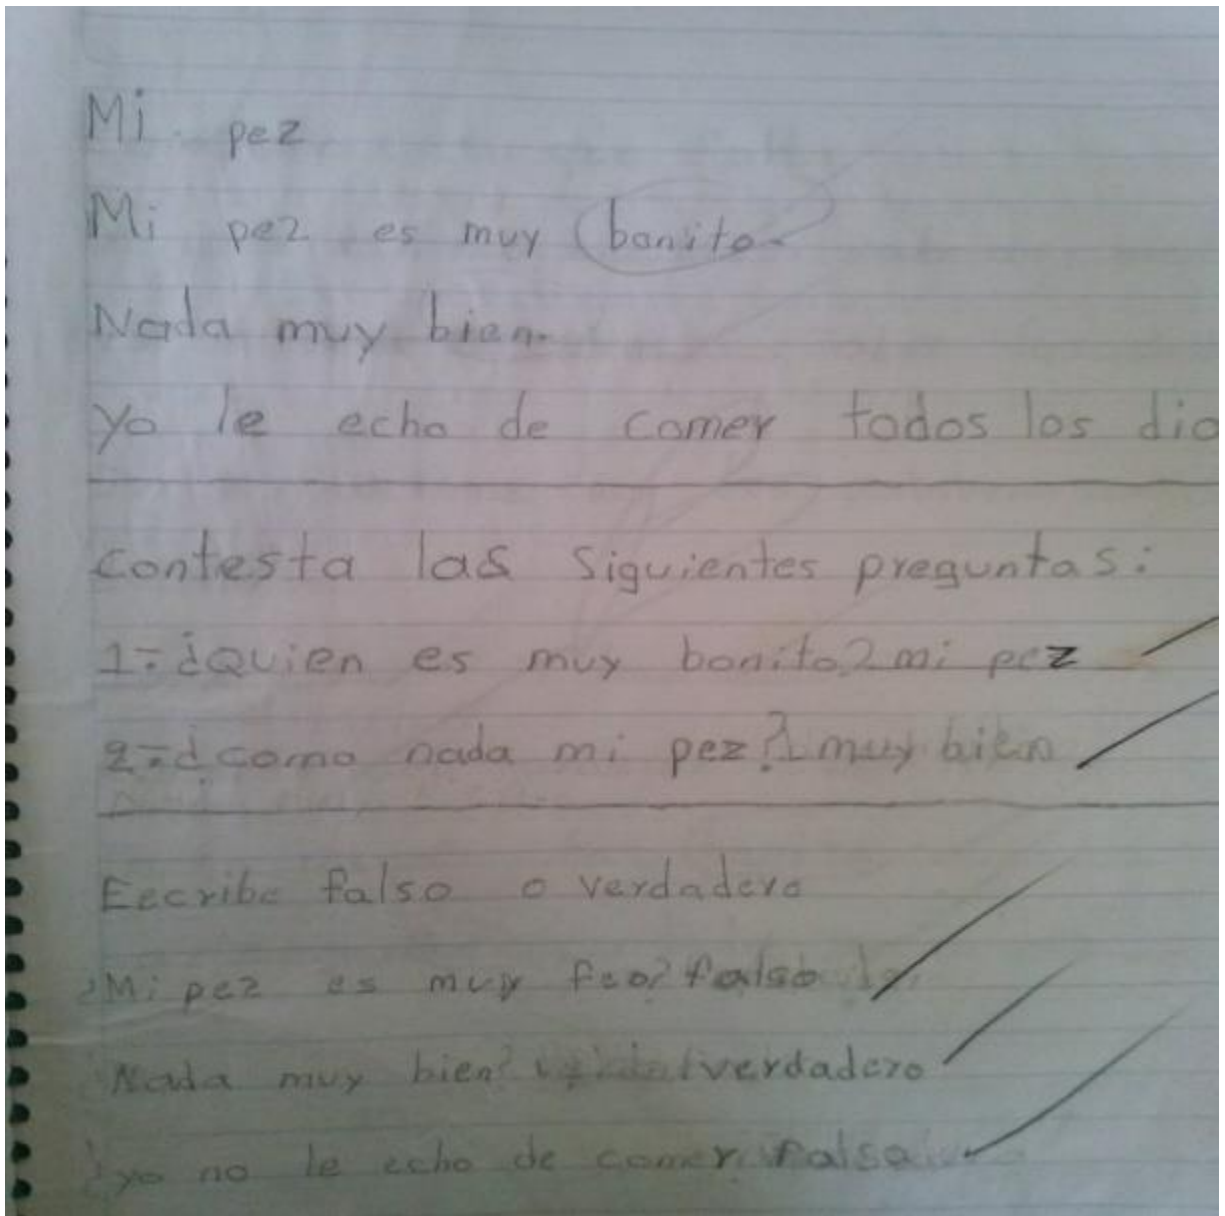 Mi pez
Mi pez es muy bonito.
Nada muy bien.
Yo le echo de comer todos los dia
contesta las siguientes preguntas:
1=¿Quien es muy bonito? mi pez
2=¿como nada mi pez? muy bien
Eecribe falso o verdadero
¿Mi pez es muy feo? falso
Nada muy bien? verdadero
¿yo no le echo de comer falsa